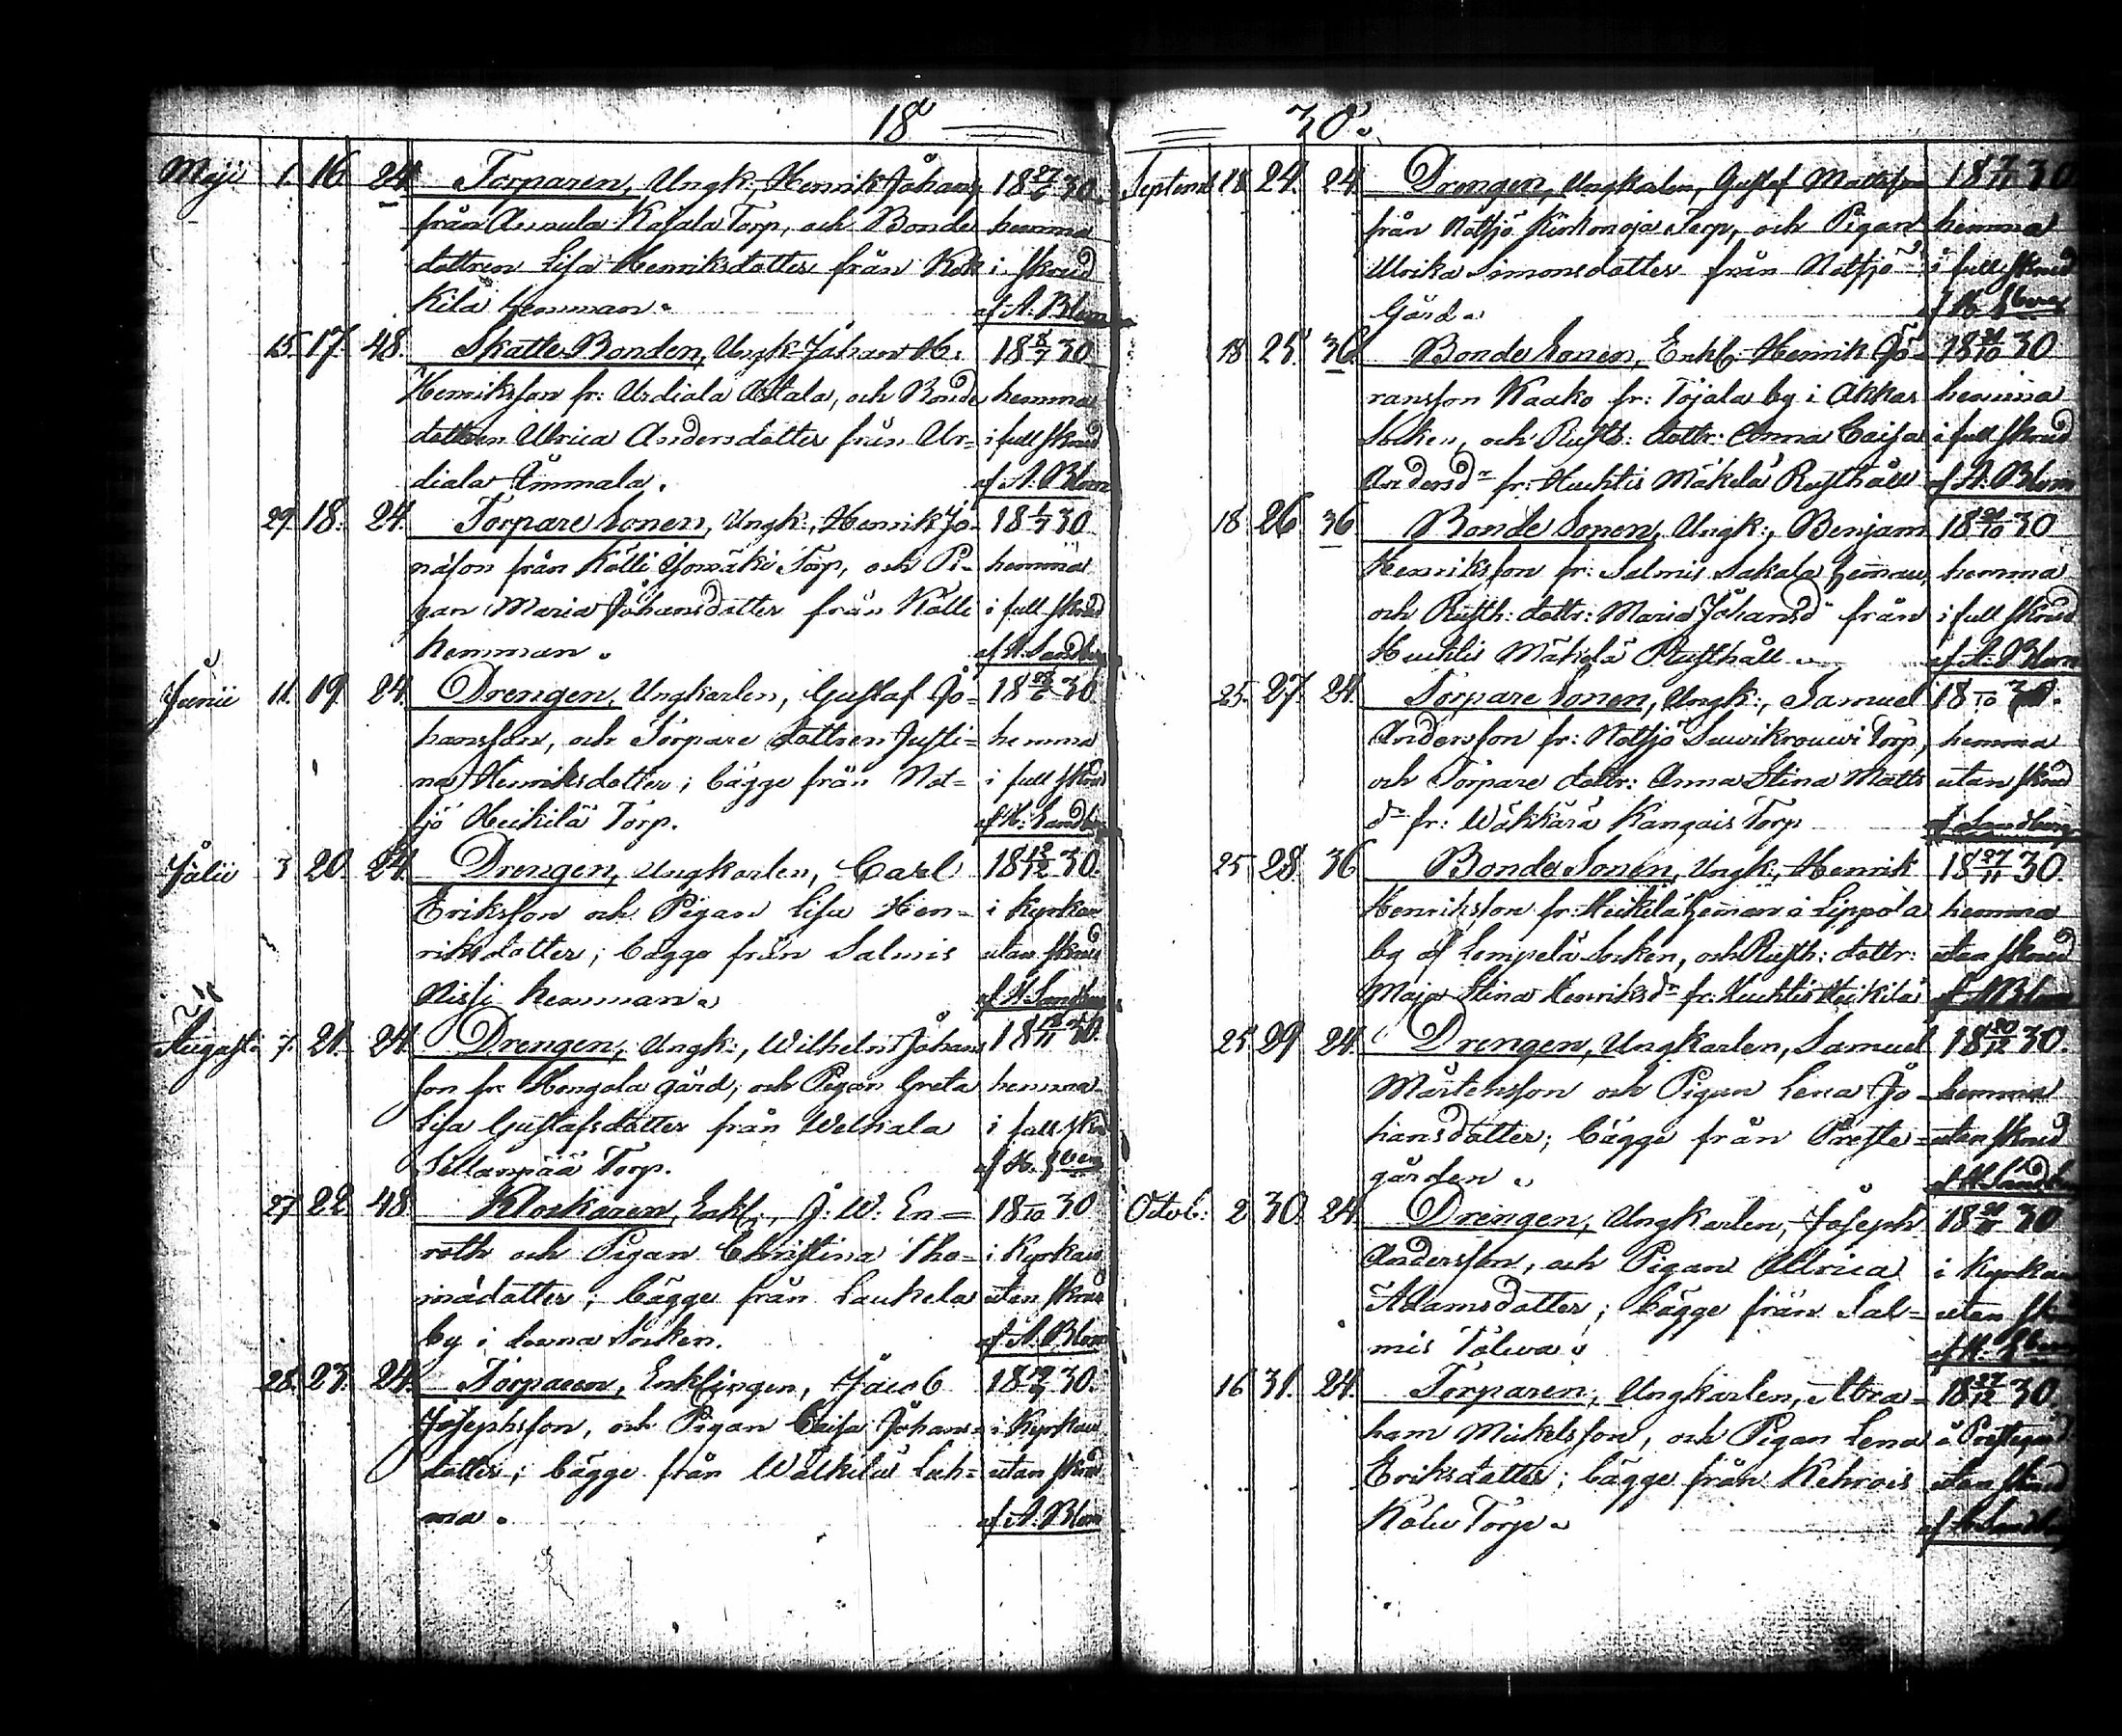 18
Maji 1. 16 24. Torparen, Ungk: Henrik Johans 18 27/6 30.
från Annula Kasala Torp, och Bonde hemma
dottren Lisa Henriksdotter från Kok i skrud
kila hemman. af A. Blom
15. 17. 48. Skatte Bonden, Ungk: Johan H. 18 8/7 30
Henriksson fr: Urdiala Astala, och Bonde hemma
dottren Ulrica Andersdotter från Ur= i full skrud
diala Ämmala. af A. Blom
29. 18. 24. Torpare Sonen, Ungk:, Henrik Jo- 18 1/7 30
näson från Kölli Jomäki Torp, och Pi- hemma
gan Maria Johansdotter från Kölli i full skrud
hemman. af H. Sandberg
Junii 11. 19. 24. Drengen, Ungkarlen, Gustaf Jo= 18 /6 30.
hansson, och Torpare dottren Justi= hemma
na Henriksdotter; bägge från Not= i full skrud
sjö Heikilä Torp. af H. Sandberg
Julii 3 20. 24. Drengen, Ungkarlen, Carl 18 12/12 30.
Eriksson och Pigan Lisa Hen= i Kyrkan
riksdotter; bägge från Salmis utan skrud
Nissi hemman. af H. Sandberg
Augusti 7. 21. 24. Drengen, Ungk:, Wilhelm Johans 18 /11 30.
son fr: Hongola gård, och Pigan Greta hemma
Lisa Gustafsdotter från Welhala i full skr
Sillanpää Torp. af H. Sberg
27. 22 48. Klockaren, Enkl:, J: W: En= 18 /10 30
roth och Pigan Christina Tho= i Kyrkan
mädotter; bägge från Laukela utan skrud
by i denna Socken. af A. Blom
28. 23. 24. Torparen, Enklingen, Jacob 18 /9 30.
Josephsson, och Pigan Caisa Johans= i Kyrkan
dotter; bägge från Wälkilä Lah= utan skrud
ma. af A. Blom
30.
Septemb 18 24. 24. Drengen, Ungkarlen, Gustaf Mattsson 18 7/11 30
från Notsjö Kirkonoja Torp, och Pigan hemma
Ulrika Simonsdotter från Notsjö i full skrud
Gård. af H. Sberg
18 25. 36 Bonde Sonen, Enkl: Henrik Jö- 18 /10 30
ransson Kaako fr: Tojala by i Akkas hemma
Socken, och Rusth: dottr: Anna Caisa i full skrud
Andersdr fr: Huhtis Mäkelä Rusthåll af A. Blom
18 26 36. Bonde Sonen, Ungk:, Benjam 18 /10 30
Henriksson fr: Salmis Sakala hemman, hemma
och Rusth: dottr: Maria Johansdr från i full skrud
Huhtis Mäkelä Rusthåll. af A. Blom
25. 27. 24. Torpare Sonen, Ungk:, Samuel 18 /10 30.
Andersson fr: Notsjö Suwikrouwi Torp, hemma
och Torpare dottr: Anna Stina Matts utan skrud
dr fr: Wäkkärä Kangais Torp af Sandberg
25 28. 36 Bonde Sonen, Ungk:, Henrik 18 27/11 30.
Henriksson fr: Heikilä hemman i Lippola hemma
by af Lempelä Socken, och Rusth: dottr: utan skrud
Maja Stina Henriksdr fr: Huhtis Heikilä af A. Blom
25 29 24. Drengen, Ungkarlen, Samuel 18 /12 30.
Mårtensson och Pigan Lena Jo- hemma
hansdotter; bägge från Preste= utan skrud
gården. af H. Sandberg
Octob: 2 30. 24. Drengen, Ungkarlen, Joseph 18 30
Andersson, och Pigan Ulrica i Kyrkan
Adamsdotter; bägge från Sal= utan sk
mis Tolwa. af H. Sberg
16 31. 24. Torparen, Ungkarlen, Abra= 18 27/12 30.
ham Mickelsson, och Pigan Lena å Prestegård
Eriksdotter; bägge från Kehrois utan skrud
Kolu Torp. af H. Sandberg